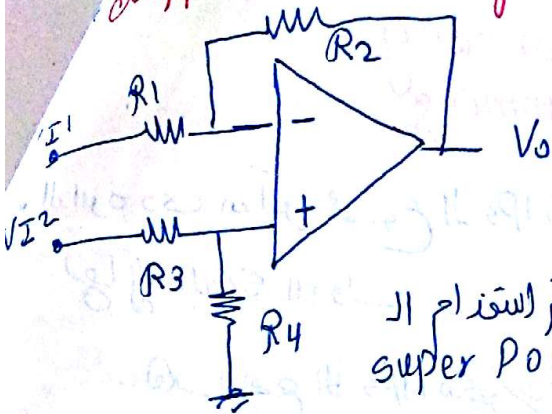 R2
R1
I1
-
Vo
VI2
+
R3
R4
استخدام ال
super Po